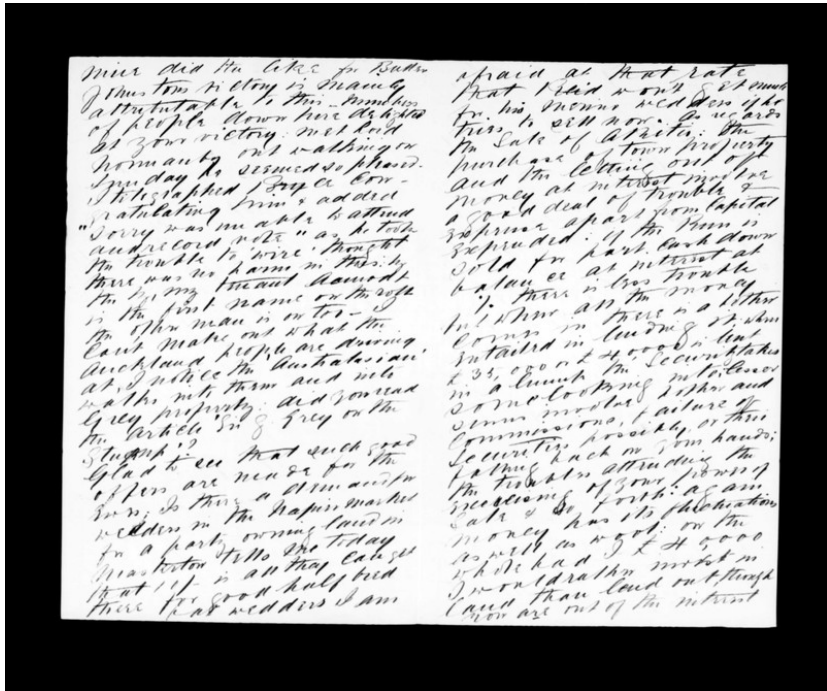 mine did the like for Butler
Johnstons victory is mainly
attributable to this - numbers
of people down here delighted
at your victory: met Lord
Normanby out walking on
Sunday he seemed so pleased.
I telegraphed Bryce con-
gratulating him & added
"Sorry was unable to attend
and record vote" as he took
the trouble to wire. thought
there was no harm in this. by
the by my
is the first name on the roll
the other man is on too -
Cant make out what the
Auckland people are driving
at, I notice the Australasian
walks into them and into
Grey properly. did you read
the article Sir G Grey on the
Stump?
Glad to see that such good
offers are made for the
Ewes; Is there a demand for
wedders in the Napier market
for a party owning land in
Masterton tells me today
that 4/- is all they can get
there for good half bred
fat wedders I am
afraid at that rate
that Reid won't get much
for his merino wedders if he
tries to sell now. As regards
the Sale of the
purchase of town property
and the letting out of
money at interest involve
a good deal of trouble &
expense apart from Capital
expended. if the Run is
sold for part cash down
balance at interest at
% there is less trouble
but when all the money
comes in there is a bother
entailed in lending it; when
£35,000 or £40000 is lent
in a lump the Security takes
some looking into. lesser
sums involve bother and
Commissions, failure of
Securities possibly, or their
falling back on your hands;
the troubles attending the
exercising of your powers of
Sale & so forth. again
money has its fluctuations
as well as wool; on the
whole had I £40,000
I would rather invest in
land than lend out, though
now are out of the interest